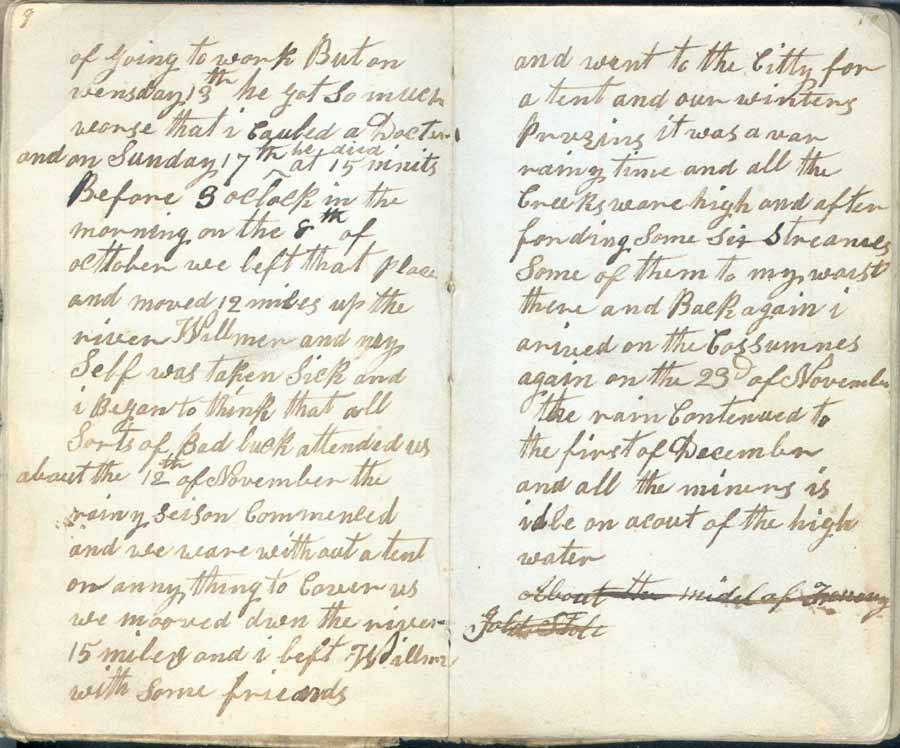 9
of going to work But on
wensday 13th he got so much
worse that i Caubed a Docter
and on Sunday 17th he died at 15 minits
Before 3 oclock in the
morning on the 8th of
octtober we left that place
and moved 12 miles up the
river Willmer and my
Self was taken Sick and
i Began to think that all
Sorts of Bad luck attended us
about the 12th of November the
rainy seison Commenced
and we ware without a tent
or anny thing to Cover us
we mooved dwn the river
15 miles and i left Willmer
with some frieands
10
and went to the Citty for
a tent and our winters
it was a var
rainy time and all the
Creeks ware high and after
fording Some Six Streames
Some of them to my waist
there and Back again i
arived on the Cossumnes
again on the 23d of November
the rain Contenued to
the first of December
and all the miners is
idle on acout of the high
water
About the midel of
Gold